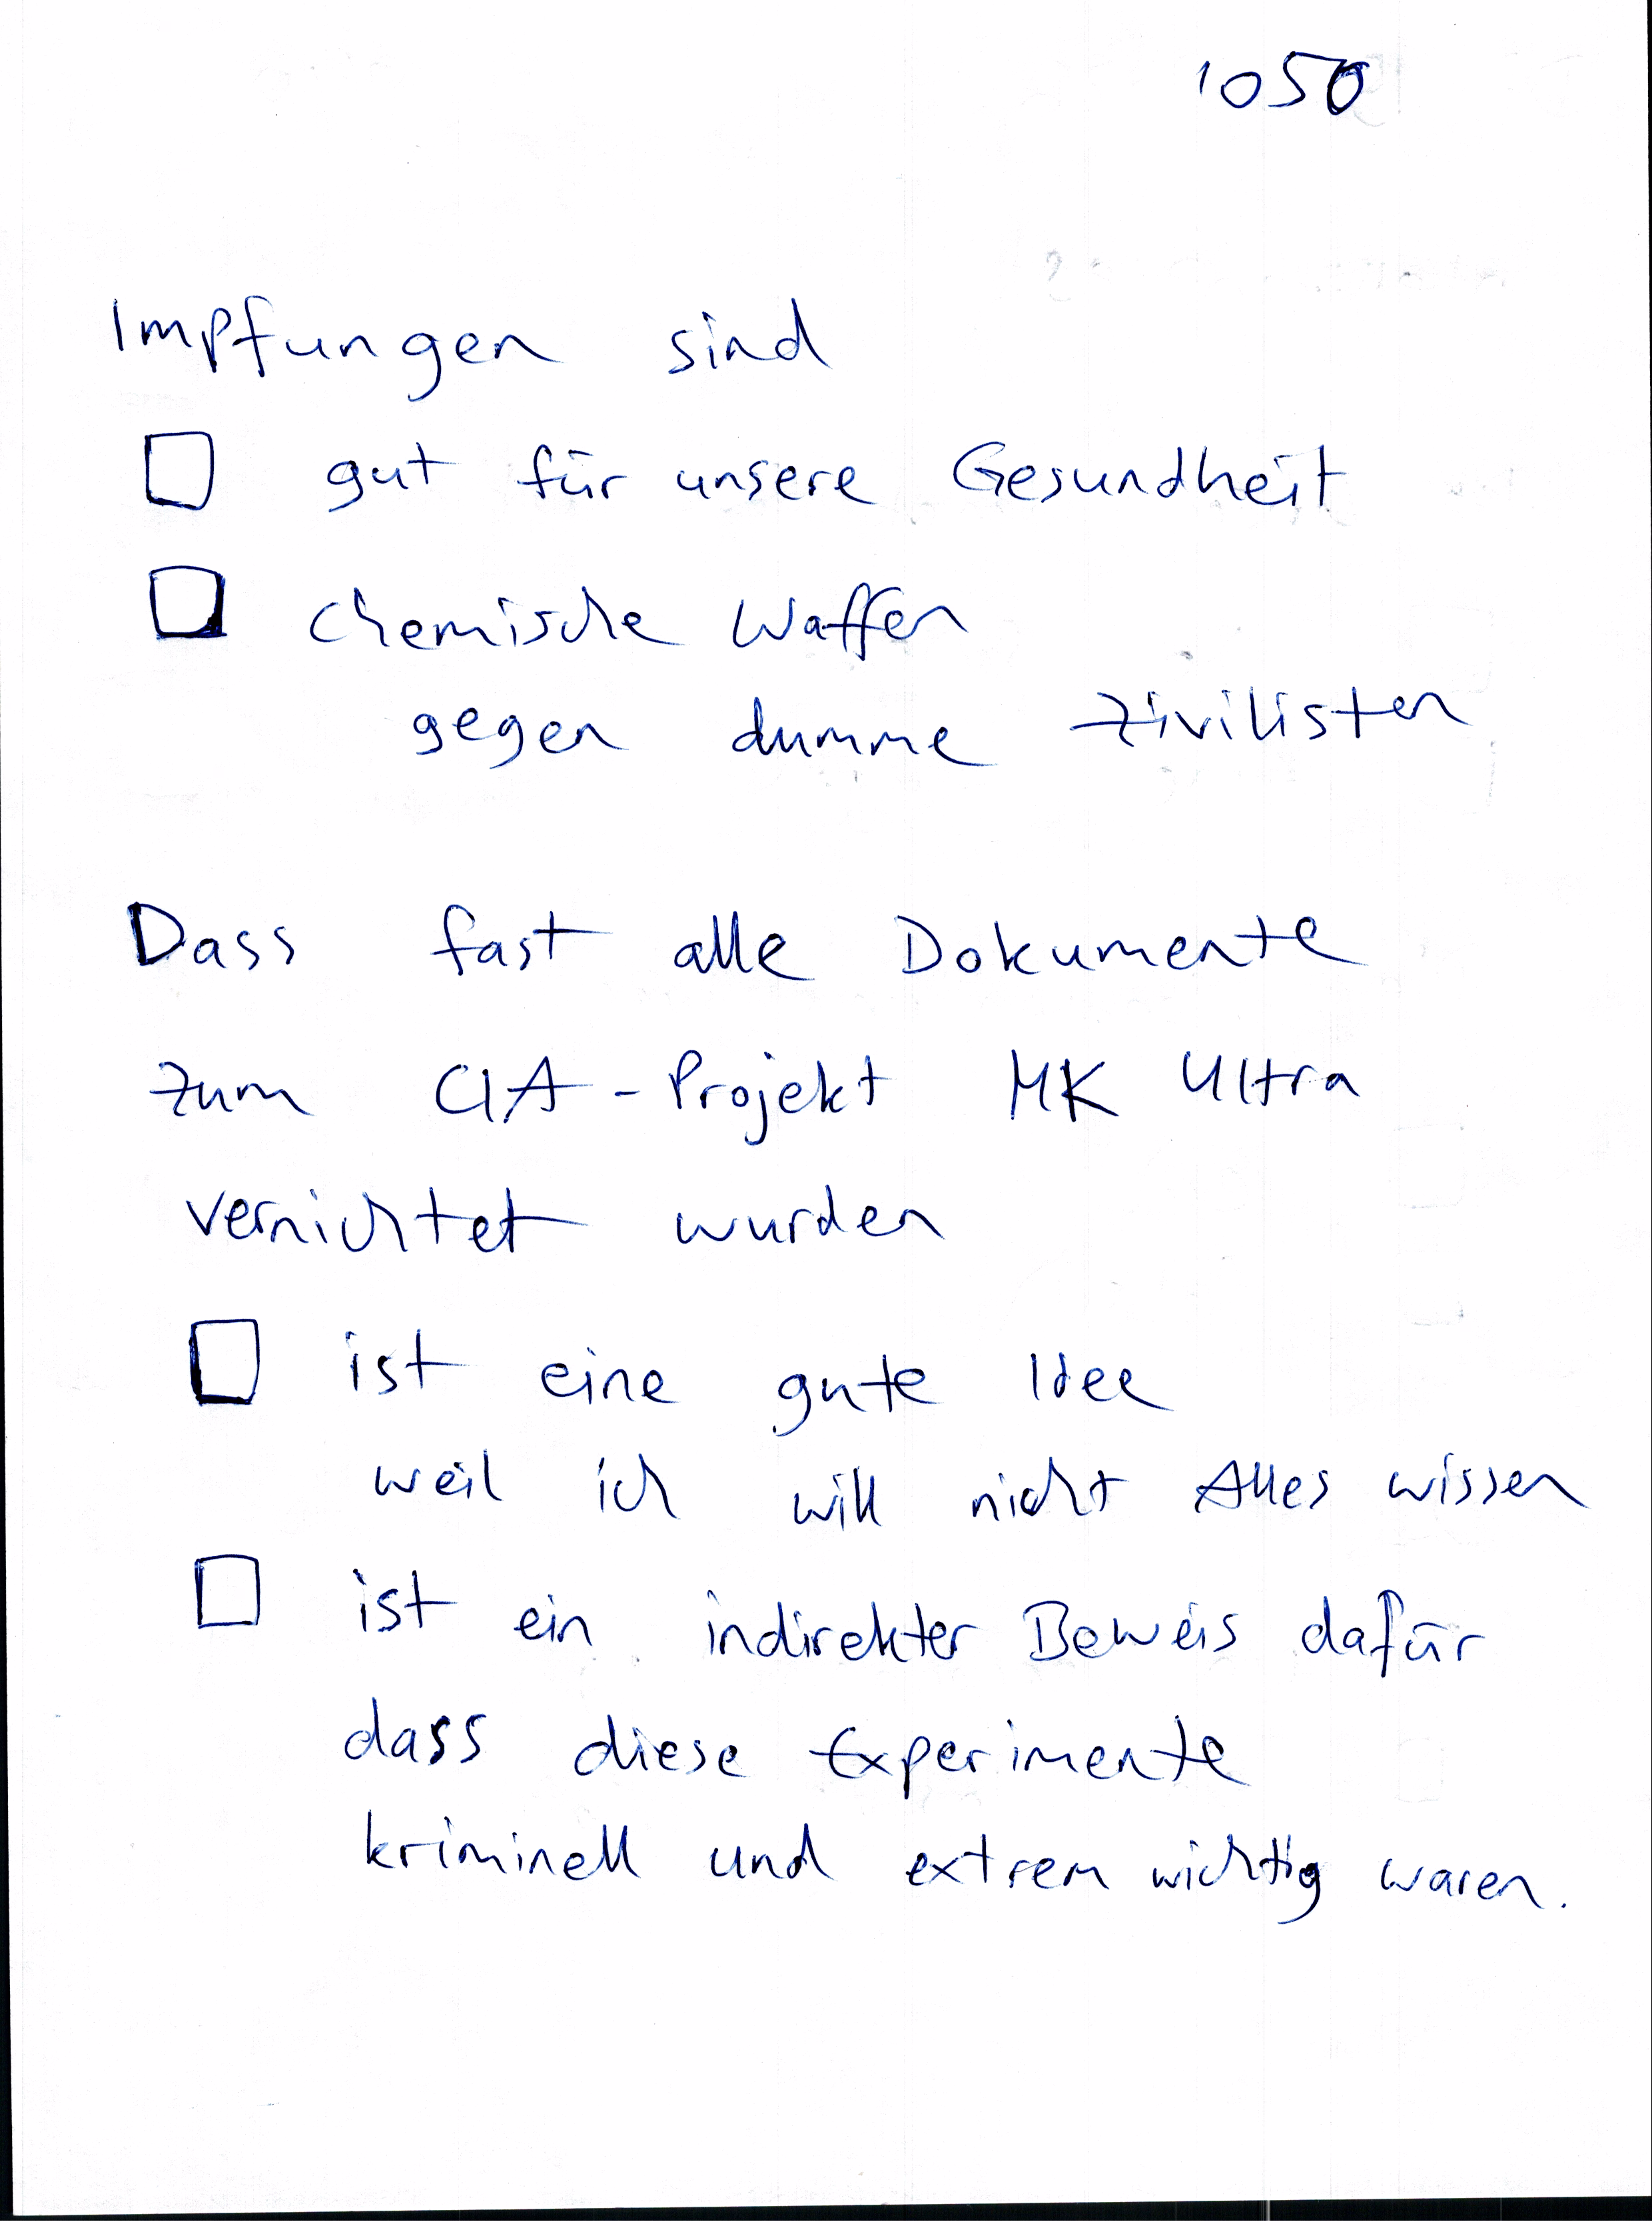 1050
Impfungen sind
gut für unsere Gesundheit
chemische Waffen
gegen dumme Zivilisten
Dass fast alle Dokumente
zum CIA-Projekt MK Ultra
vernichtet wurden
ist eine gute Idee
weil ich will nicht Alles wissen
ist ein indirekter Beweis dafür
dass diese Experimente
kriminell und extrem wichtig waren.